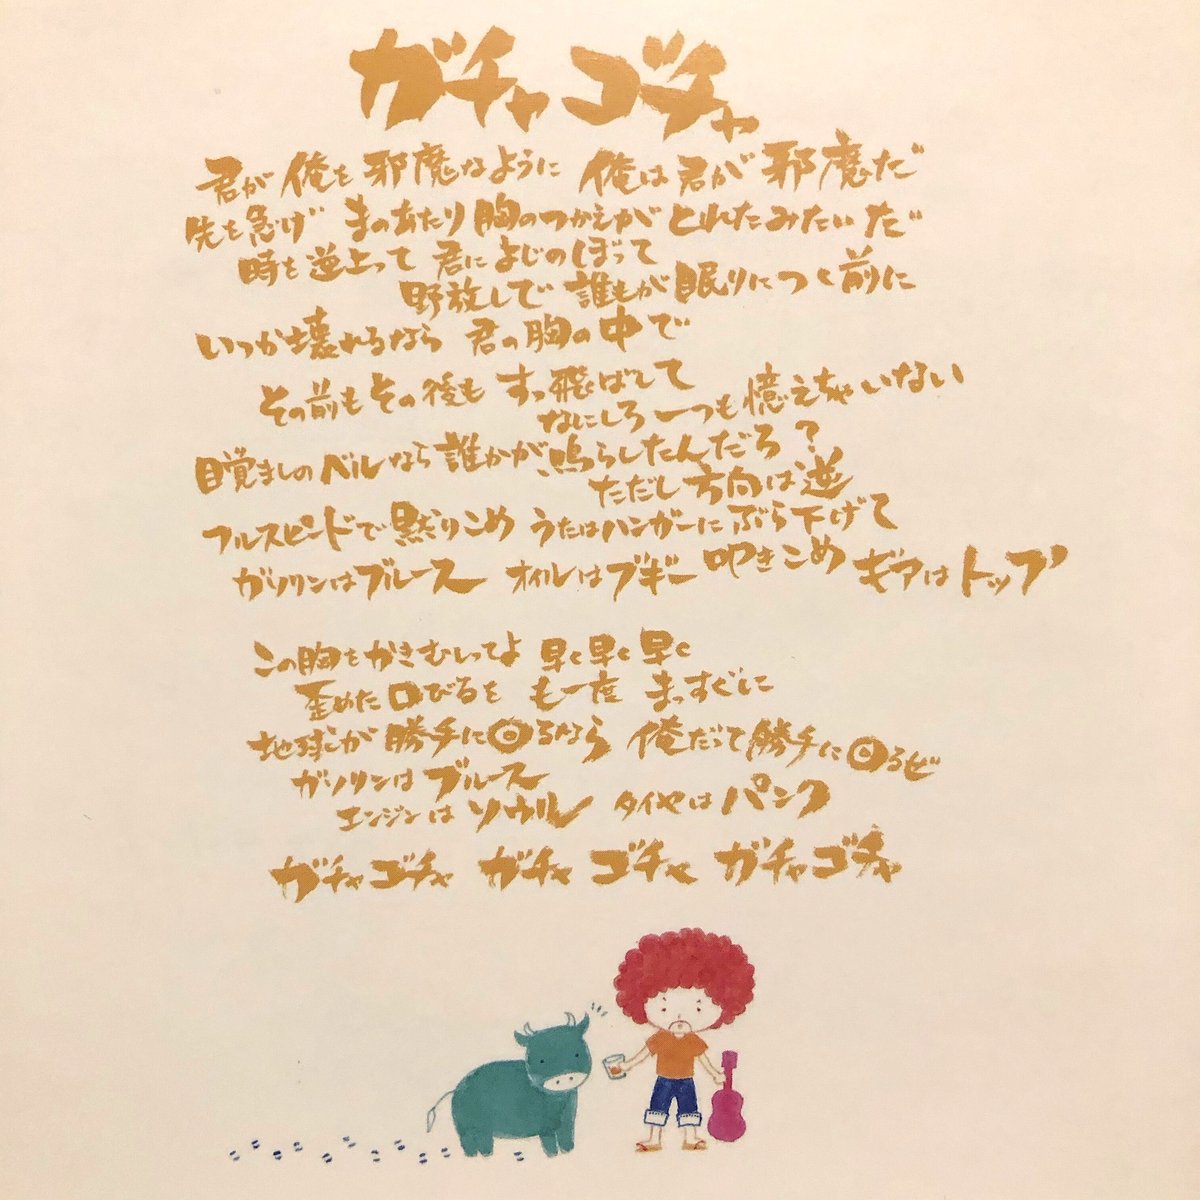 ガチャゴチャ
君が 俺を 邪魔なように 俺は 君が 邪魔だ
先を急げ まのあたり 胸のつかえが とれたみたいだ
時を逆上って 君に よじのぼって
野放しで 誰もが 眠りにつく前に
いつか壊れるなら 君の胸の中で
その前も その後も すっ飛ばして
なにしろ 一つも 憶えちゃいない
目覚ましの ベルなら 誰かが 鳴らしたんだろ?
ただし 方向は 逆
フルスピードで 黙りこめ うたはハンガーに ぶら下げて
ガソリンはブルース オイルはブギー 叩きこめ ギアはトップ
この胸をかきむしってよ 早く早く早く
歪めた口びるを も一度 まっすぐに
地球が 勝手に回るなら 俺だって勝手に回るぜ
ガソリンは ブルース
エンジンは ソウル タイヤは パンク
ガチャゴチャ ガチャゴチャ ガチャゴチャ